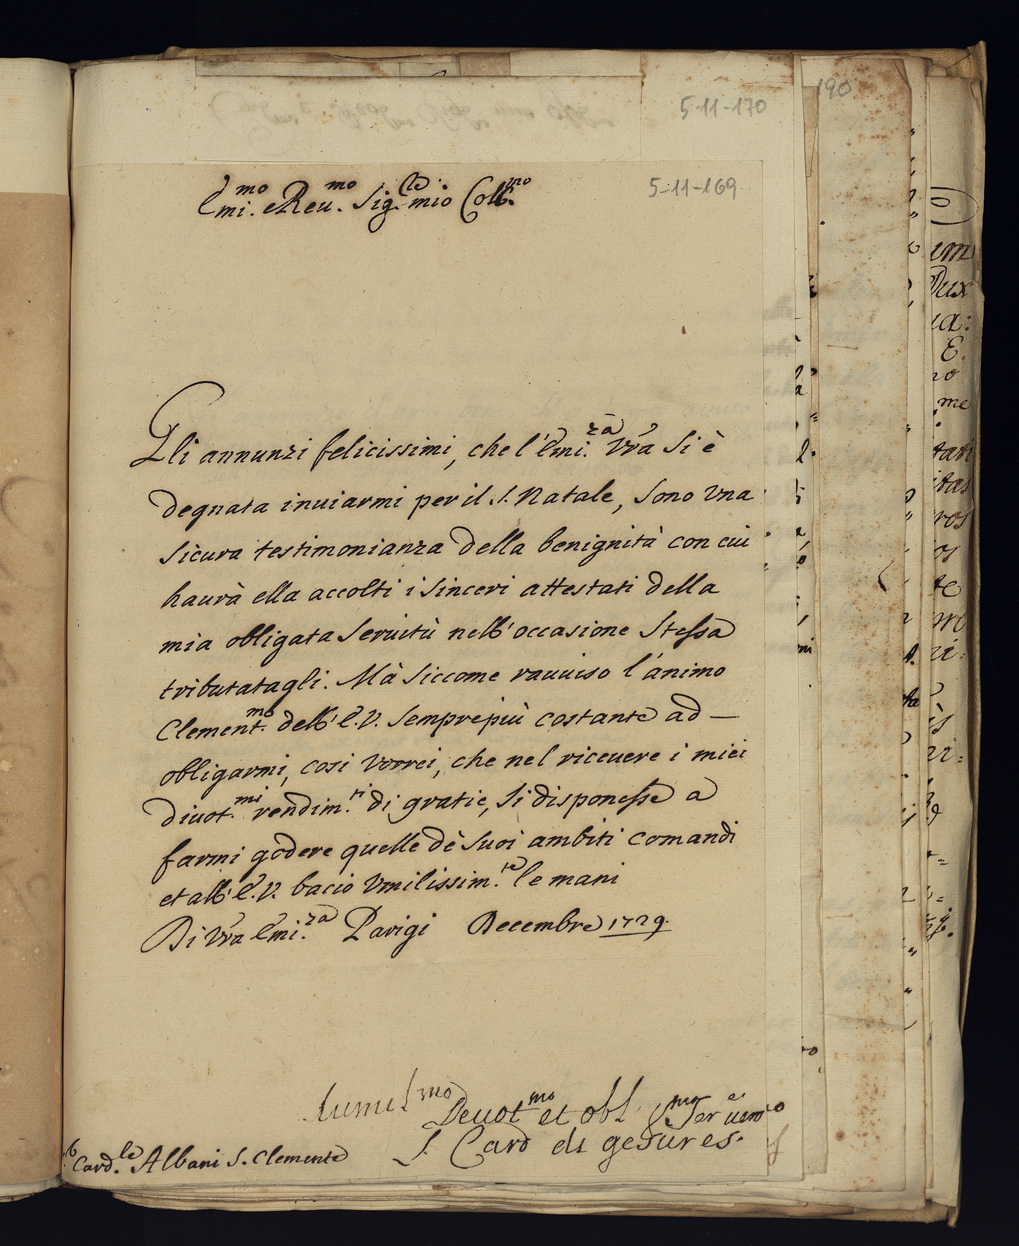 5-11-170
190
5-11-169
Emi.mo e Reu.mo Sig.re mio Coll.mo
Gli annunzi felicissimi, che l'Emi.za Vra si è
degnata inuiarmi per il S. Natale, sono una
sicura testimonianza della benignità con cui
haurà ella accolti i sinceri attestati della
mia obligata seruitù nell'occasione stessa
tributatagli. Mà siccome rauuiso l'animo
Clement.mo dell'E.V. sempre più costante ad —
obligarmi, così vorrei, che nel riceuere i miei
diuot.mi rendim.ti di gratie, si disponesse a
farmi godere quelle dè suoi ambiti comandi
et all'E.V. bacio vmilissim.te le mani
Di Vra Emi.za Parigi Decembre 1729.
humil.mo Deuot.mo et obl.mo seruero
Card de gesures.
Card.le Albani S. Clemente